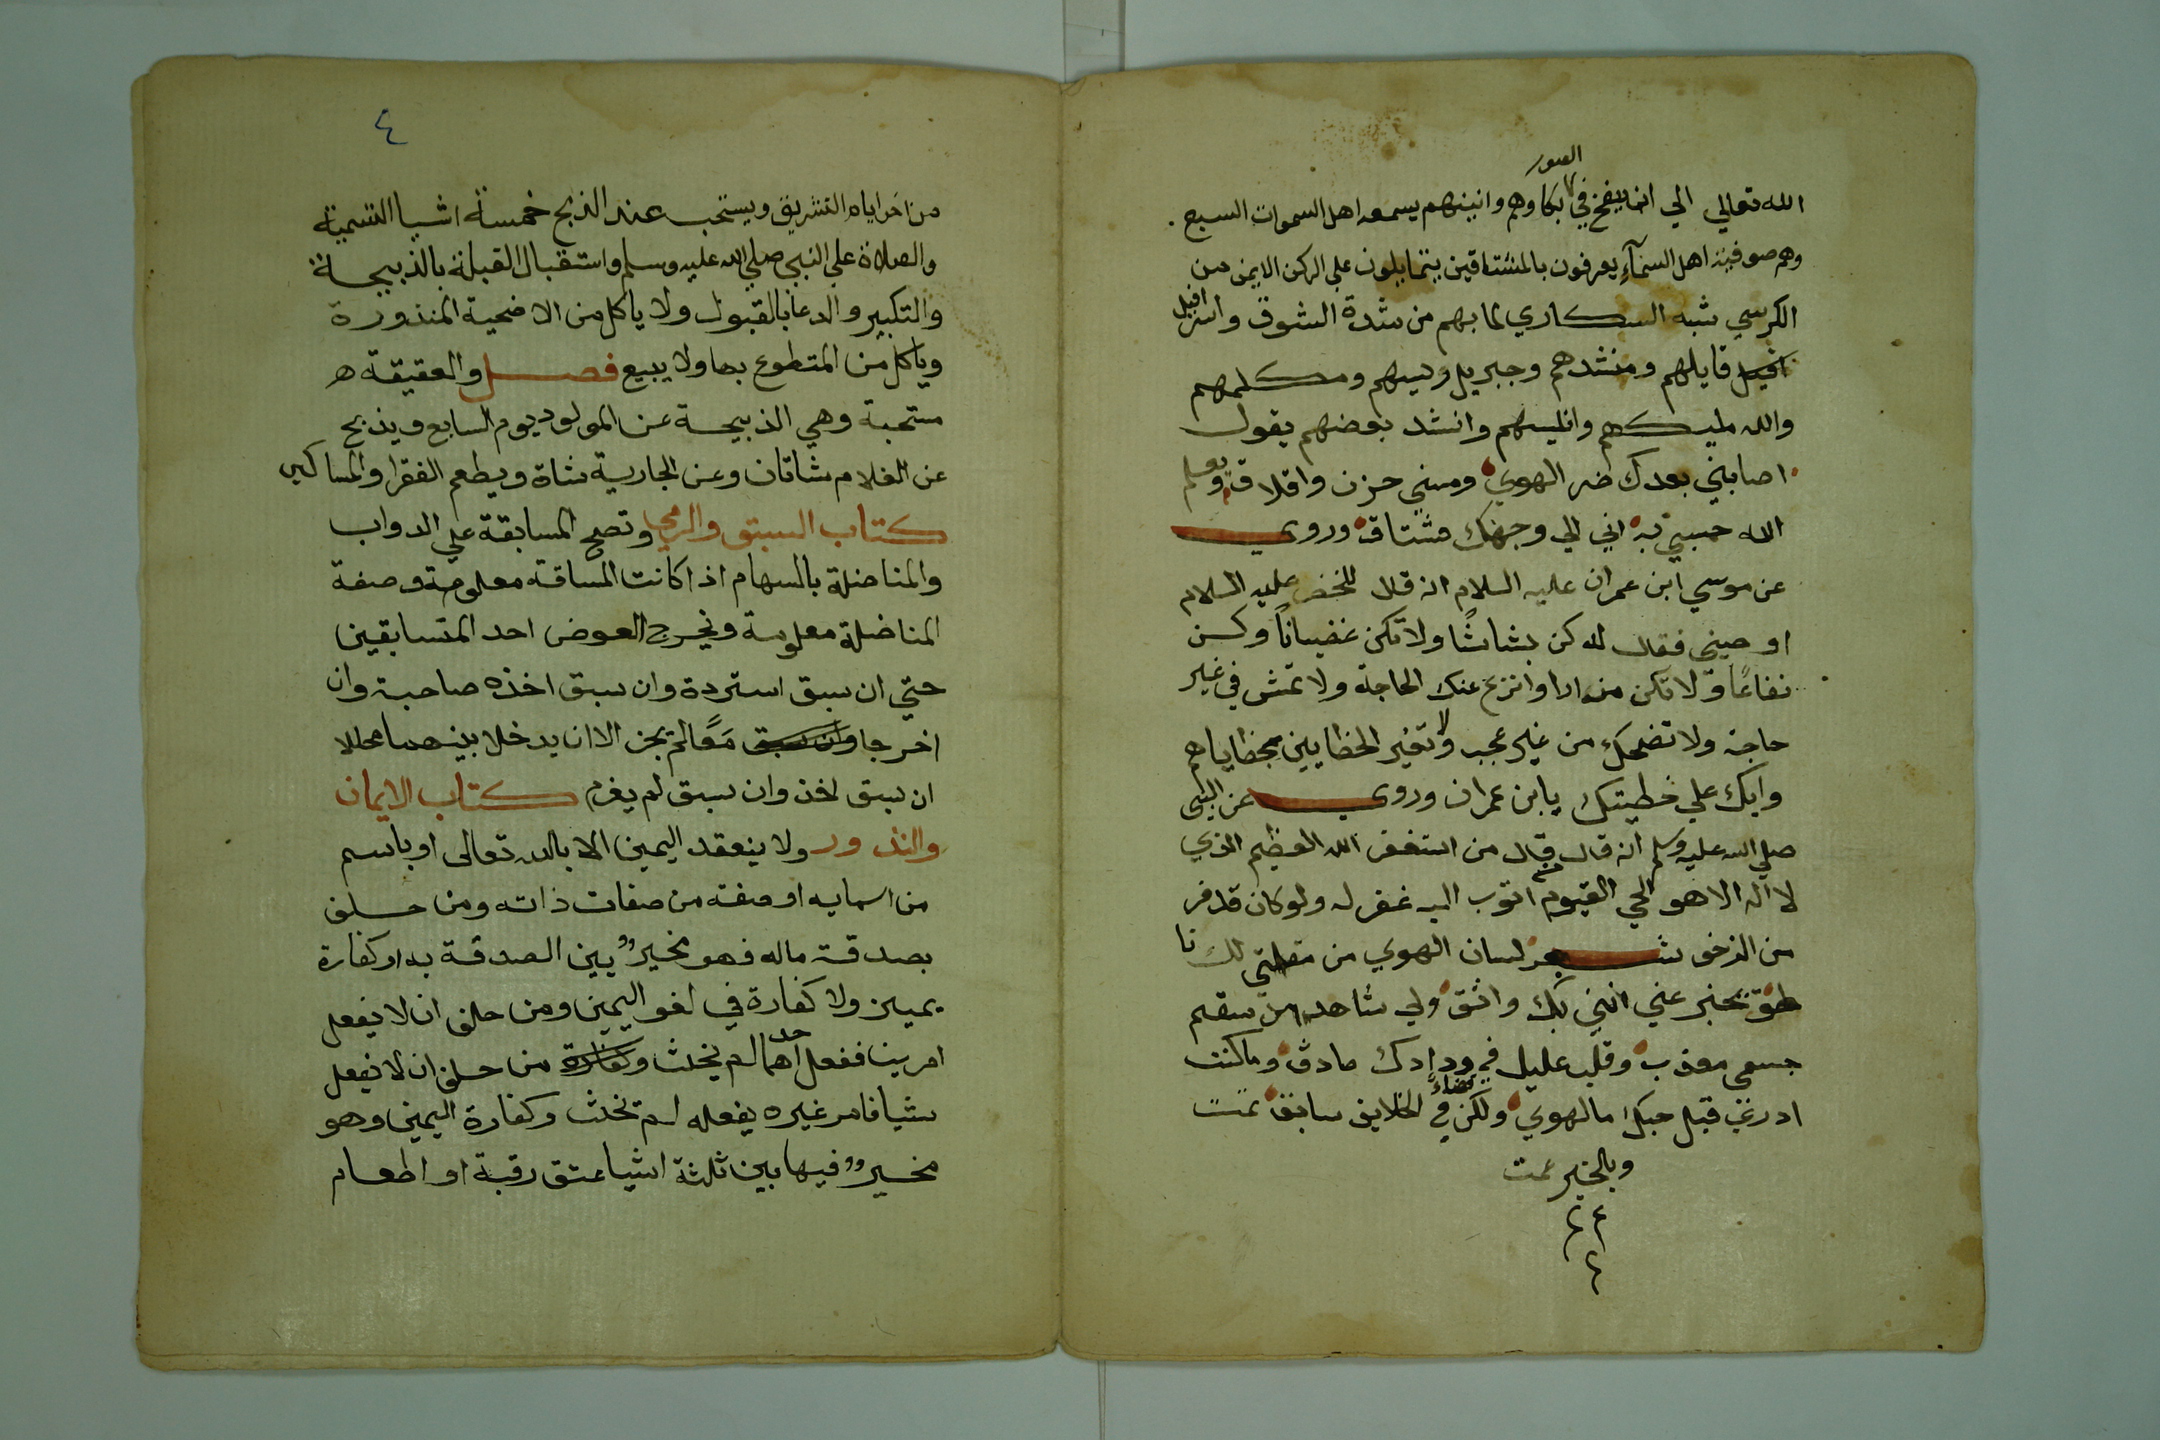 الصور
الله تعالي الي ان ينفخ في بكاوهم وانينهم يسمعه اهل السموات السبع
وهم صوفية اهل السمآء يعرفون بالمشتاقين يتمايلون علي الركن الايمن من
الكرسي شبه السكاري لما بهم من شدة الشوق واسرافيل
قايلهم ومنشدهم وجبريل ريسهم ومكلمهم
والله مليكهم وانيسهم وانشد بعضهم يقول
اصابني بعدك ضر الهوي ومسني حزن واقلاق ويعلم
الله حسبي به اني الي وجهك مشتاق وروي
عن موسي ابن عمران عليه السلام انه قال للخضر عليه السلام
اوصيني فقال له كن بشاشًا ولا تكن غضبانًا وكن
نفاعًا ولا تكن ضرارا وانزع عنك الحاجة ولا تمش في غير
حاجة ولا تضحك من غير عجب ولا تعير الخطايين بخطاياهم
وابك علي خطيتك يابن عمران وروي عن النبي
صلي الله عليه وسلم انه قال قال من استغفر الله العظيم الذي
لا اله الا هو الحي القيوم اتوب اليه غفر له ولو كان قد فر
من الزخو شعر لسان الهوي من مقلتي لك نا
طق يخبر عني انني بك واثق ولي شاهد من سقم
جسمي معذب وقلب عليل في ودادك صادق وما كنت
ادري قبل حبك ما الهوي ولكن قضاءً في الخلايق سابق تمت
وبالخير عمت
٤
من اخر ايام التشريق ويستحب عند الذبح خمسة اشيا التسمية
والصلاة علي النبي صلي الله عليه وسلم واستقبال القبلة بالذبيحة
والتكبير والدعا بالقبول ولا ياكل من الاضحية المنذورة
وياكل من المتطوع بها ولا يبيع فصل والعقيقة
مستحبة وهي الذبيحة عن المولود يوم السابع ويذبح
عن الغلام شاتان وعن الجارية شاة ويطعم الفقرا والمساكين
كتاب السبق والرمي وتصح المسابقة علي الدواب
والمناضلة بالسهام اذا كانت المسافة معلومة وصفة
المناضلة معلومة ويخرج العوض احد المتسابقين
حتي ان سبق استردة وان سبق اخذه صاحبة وان
اخرجا وان سبق معًا لم يجز الا ان يدخلا بينهما محللا
ان سبق اخذ وان سبق لم يغرم كتاب الايمان
والنذور ولا ينعقد اليمين الا بالله تعالى او باسم
من اسمايه او صفة من صفات ذاته ومن حلف
بصدقة ماله فهو مخير بين الصدقة به او كفارة
يمين ولا كفارة في لغو اليمين ومن حلف ان لا يفعل
امرين ففعل احدهما لم يخنث وكفارة من حلف ان لا يفعل
شيا فامر غيره يفعله لم تخنث وكفارة اليمين وهو
مخير فيها بين ثلثة اشيا عتق رقبة او اطعام